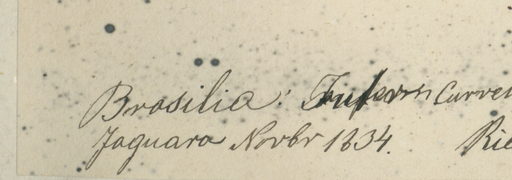 Brasilia: Curvel
Jaguara Novbr 1834. Rie